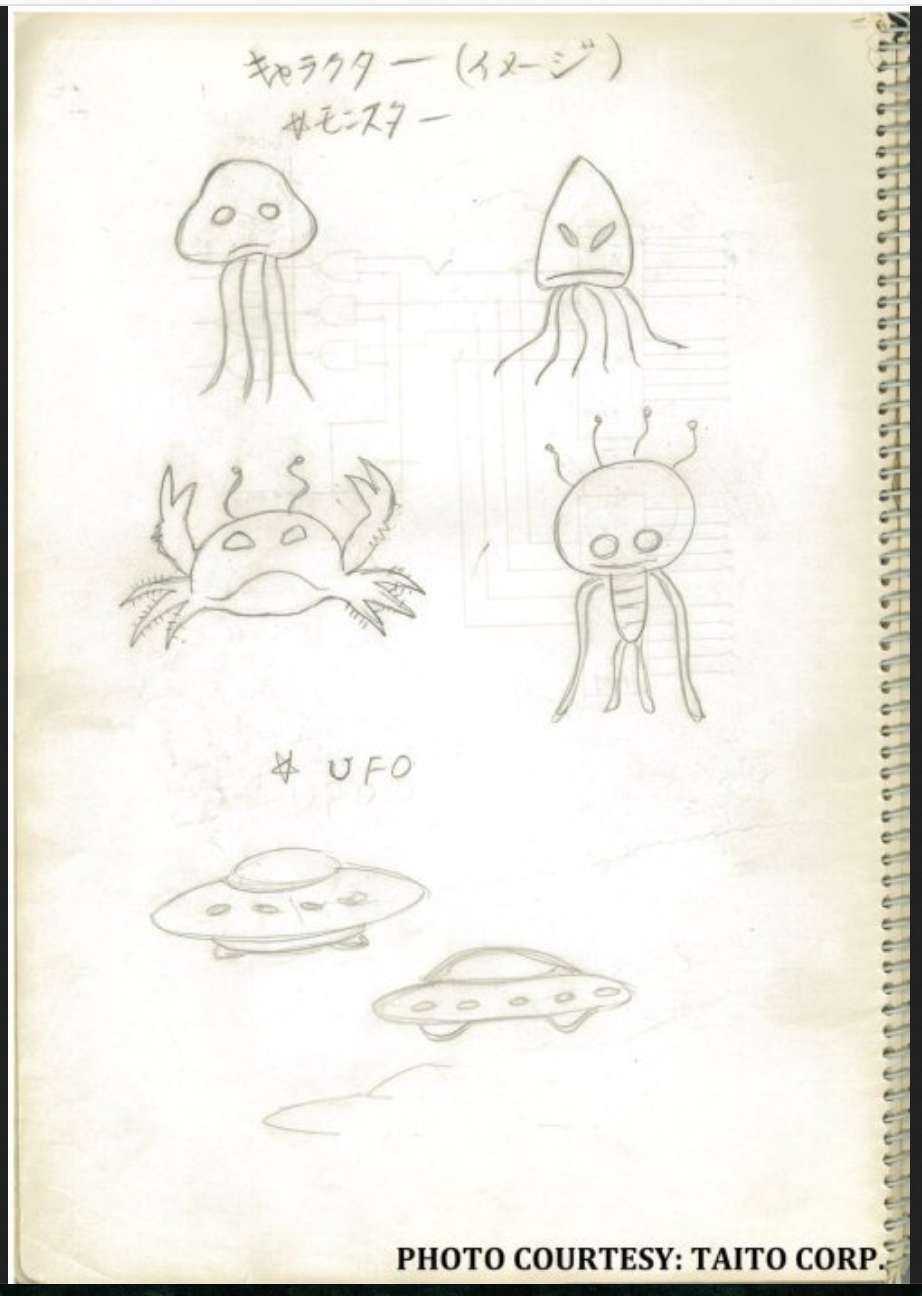 キャラクター (イメージ)
☆モンスター
☆ UFO
PHOTO COURTESY: TAITO CORP.